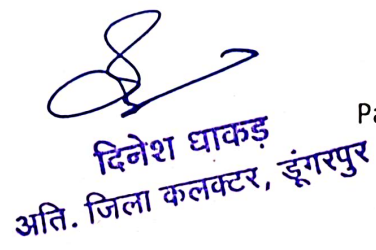 Pa
दिनेश धाकड़
अति. जिला कलक्टर, डूंगरपुर